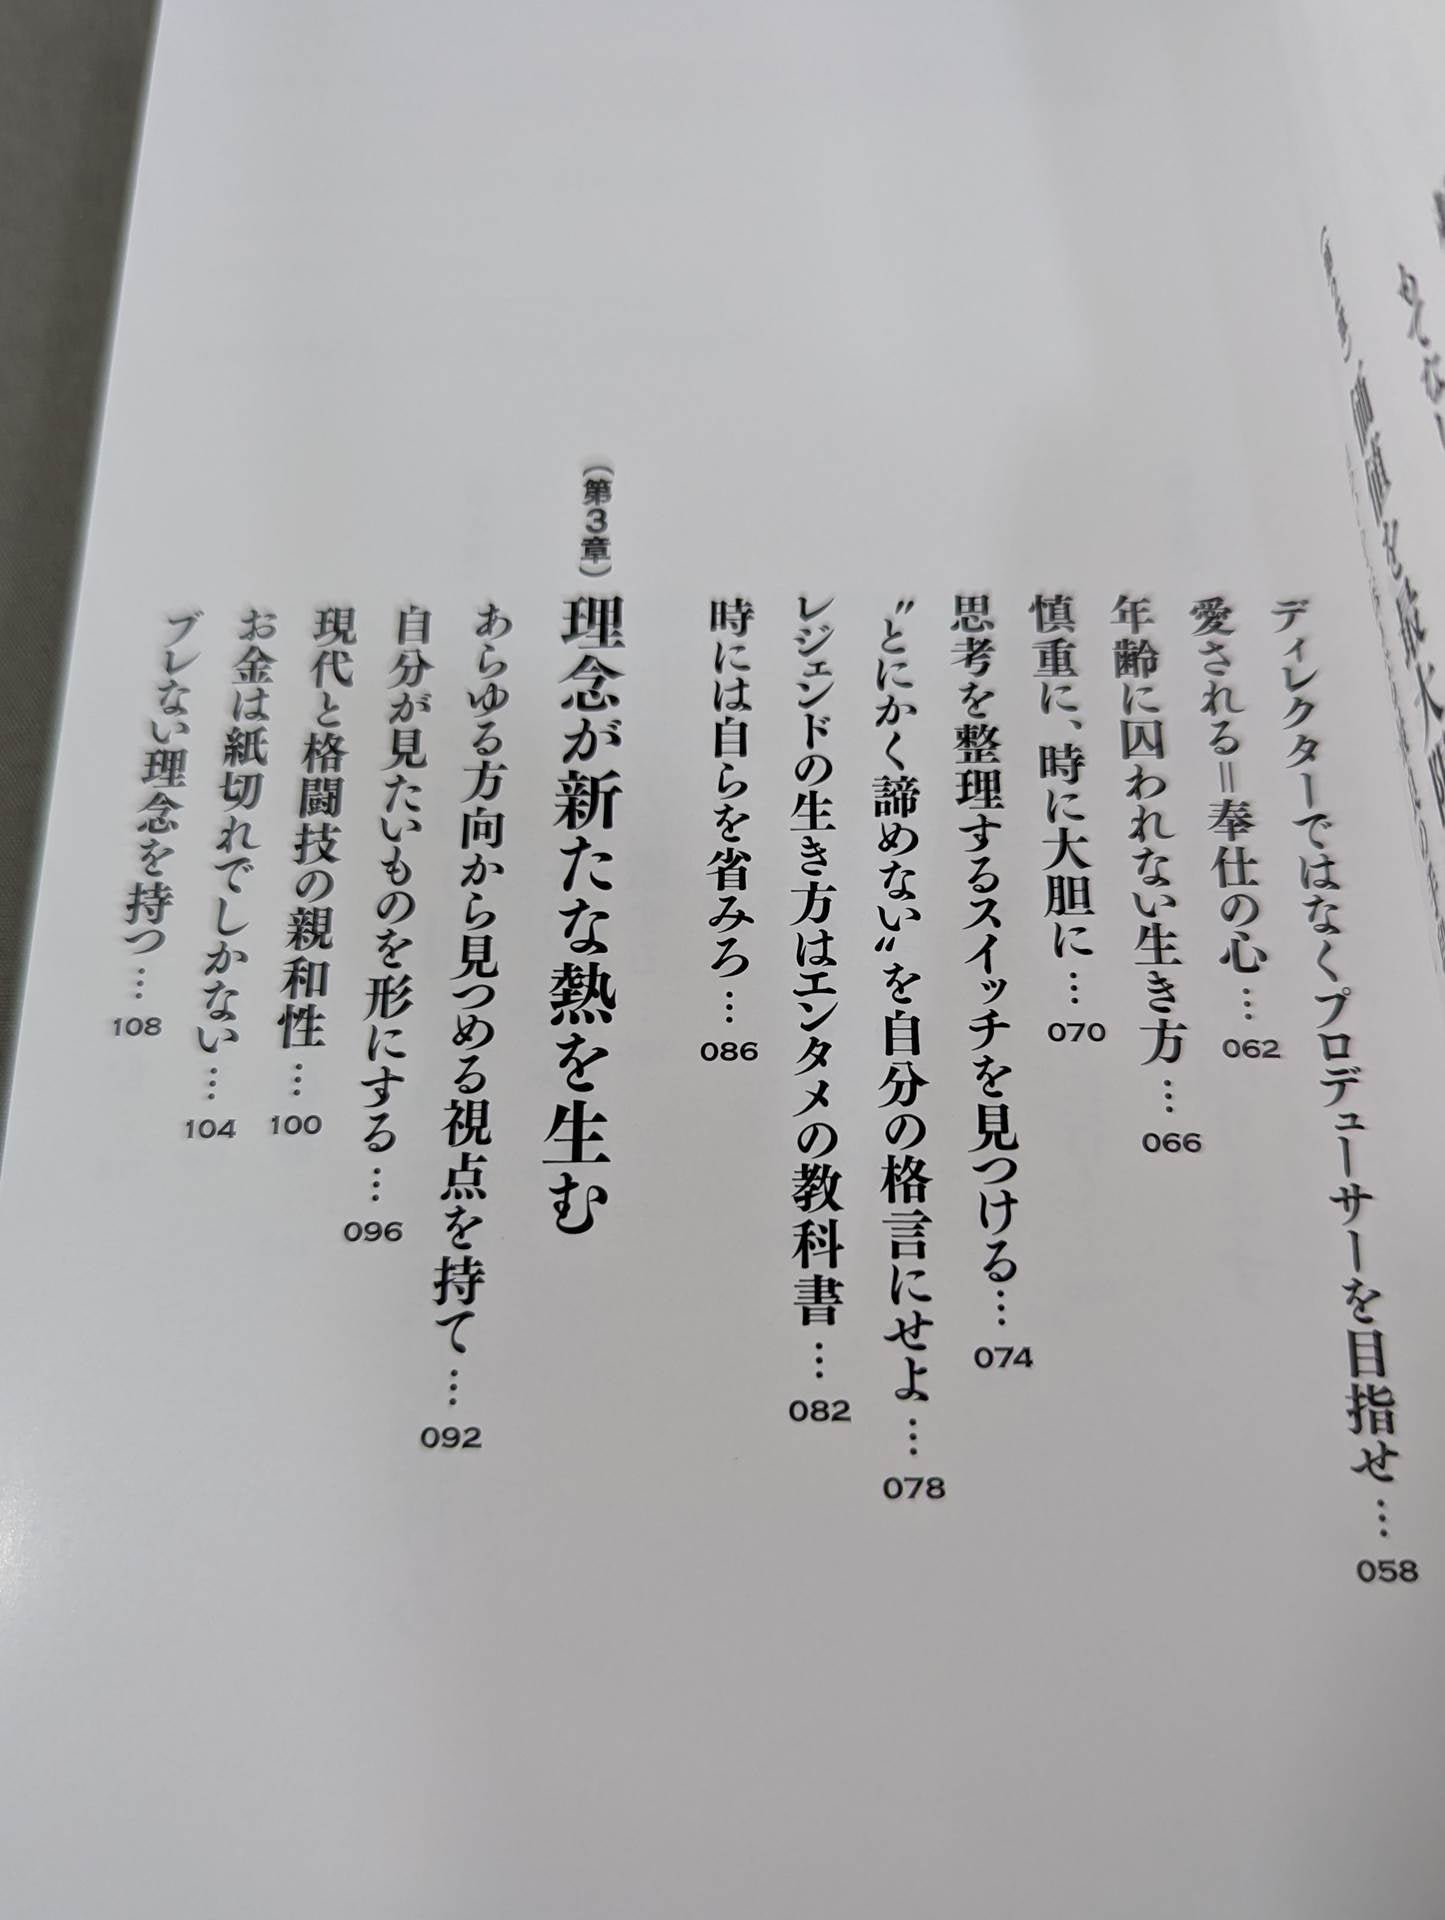 ディレクターではなくプロデューサーを目指せ…058
愛される＝奉仕の心…062
年齢に囚われない生き方…066
慎重に、時に大胆に…070
思考を整理するスイッチを見つける…074
〝とにかく諦めない〟を自分の格言にせよ…078
レジェンドの生き方はエンタメの教科書…082
時には自らを省みろ…086
（第3章）理念が新たな熱を生む
あらゆる方向から見つめる視点を持て…092
自分が見たいものを形にする…096
現代と格闘技の親和性…100
お金は紙切れでしかない…104
ブレない理念を持つ…108